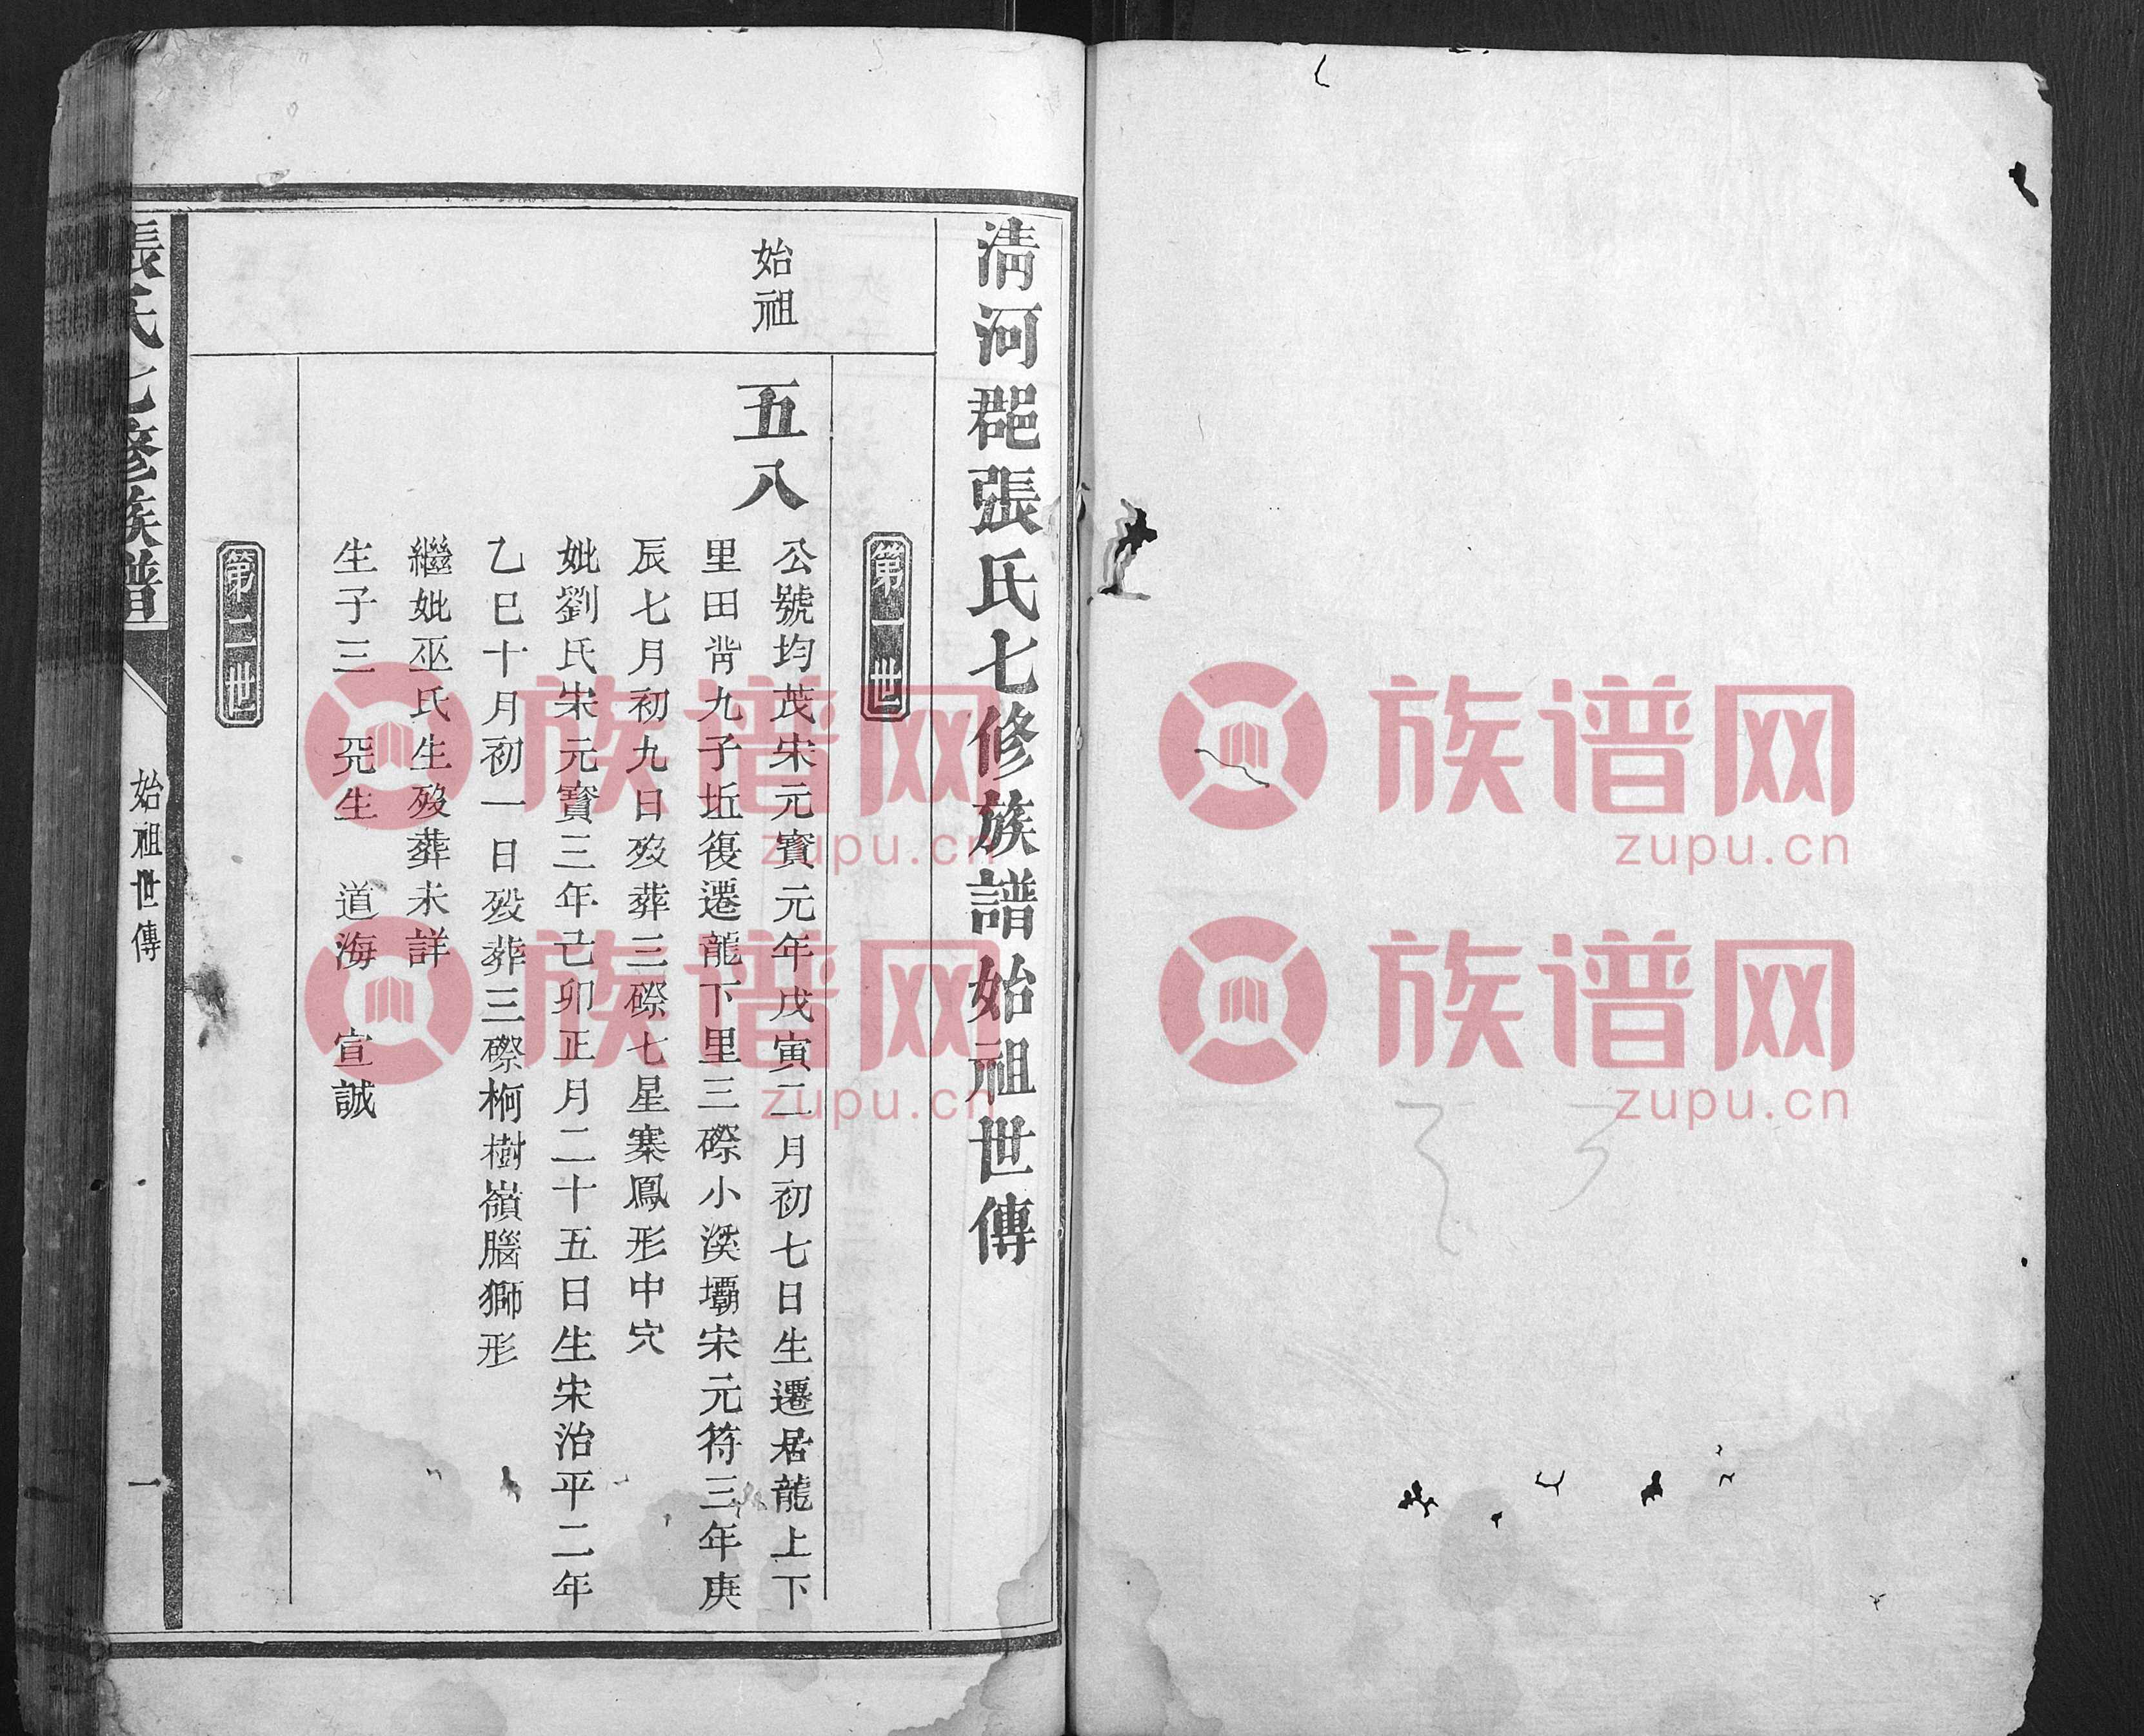 清河郡張氏七修族譜始祖世傳
第一世
始祖
五八
公號均茂宋元寳元年戊寅二月初七日生遷居龍上下
里田背九子坵復遷龍下里三磜小溪壩宋元符三年庚
辰七月初九日歿葬三磜七星寨鳳形中穴
妣劉氏宋元寳三年己卯正月二十五日生宋治平二年
乙巳十月初一日歿葬三磜桐樹嶺腦獅形
繼妣巫氏生歿葬未詳
生子三 兕生 道海 宣誠
第二世
張氏七修族譜
始祖世傳
一
族谱网
zupu.cn
族谱网
zupu.cn
族谱网
zupu.cn
族谱网
zupu.cn